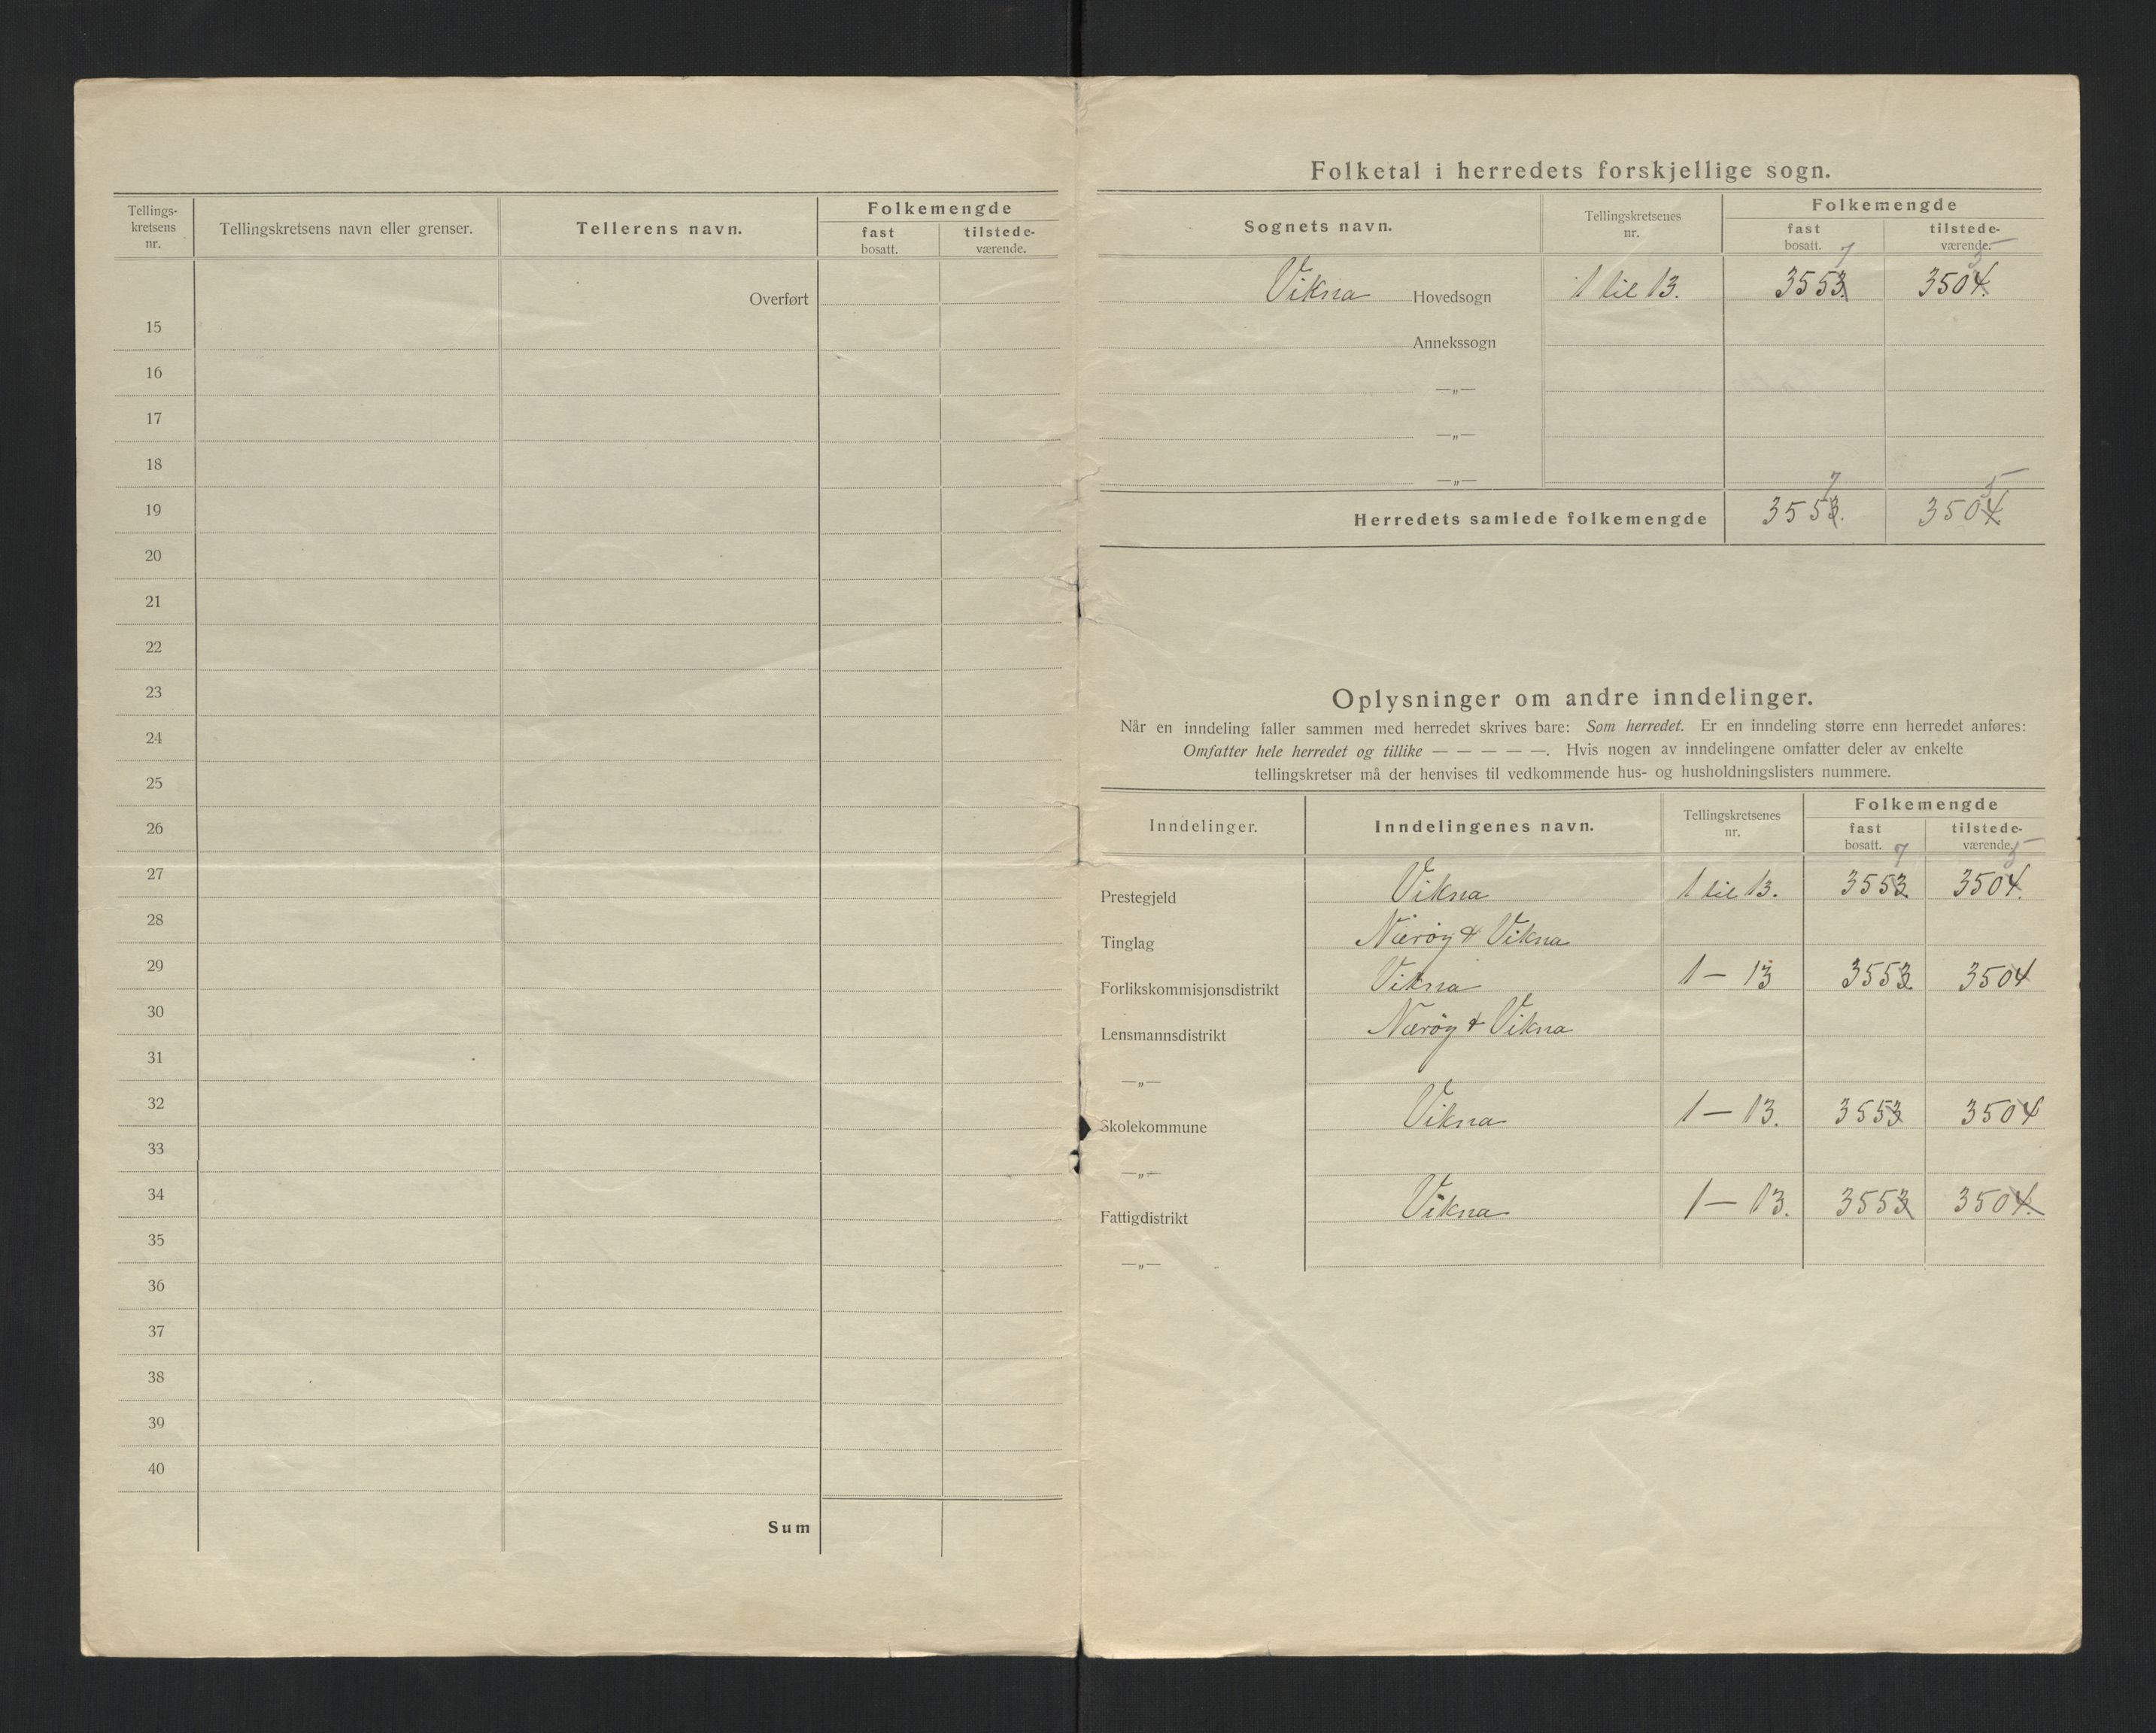 Tellings-
kretsens
nr.
Tellingskretsens navn eller grenser.
Tellerens navn.
Folkemengde
fast
bosatt.
tilstede-
værende.
Overført
15
16
17
18
19
20
21
22
23
24
25
26
27
28
29
30
31
32
33
34
35
36
37
38
39
40
Sum
Folketal i herredets forskjellige sogn.
Sognets navn.
Tellingskretsenes
nr.
Folkemengde
fast
bosatt.
tilstede-
værende.
7 5
Vikna Hovedsogn 1 til 13. 3553. 3504.
Annekssogn
—„—
—„—
—„—
7 5
Herredets samlede folkemengde 3553. 3504
Oplysninger om andre inndelinger.
Når en inndeling faller sammen med herredet skrives bare: Som herredet. Er en inndeling større enn herredet anføres:
Omfatter hele herredet og tillike — — — — —. Hvis nogen av inndelingene omfatter deler av enkelte
tellingskretser må der henvises til vedkommende hus- og husholdningslisters nummere.
Inndelinger.
Inndelingenes navn.
Tellingskretsenes
nr.
Folkemengde
fast
bosatt.
tilstede-
værende.
7 5
Prestegjeld Vikna 1 til 13. 3553 3504.
Tinglag Nærøy & Vikna
Forlikskommisjonsdistrikt Vikna 1 — 13 3553 3504
Lensmannsdistrikt Nærøy & Vikna
—„—
Skolekommune Vikna 1 — 13. 3553 3504
—„—
Fattigdistrikt Vikna 1 — 13. 3553 3504.
—„—